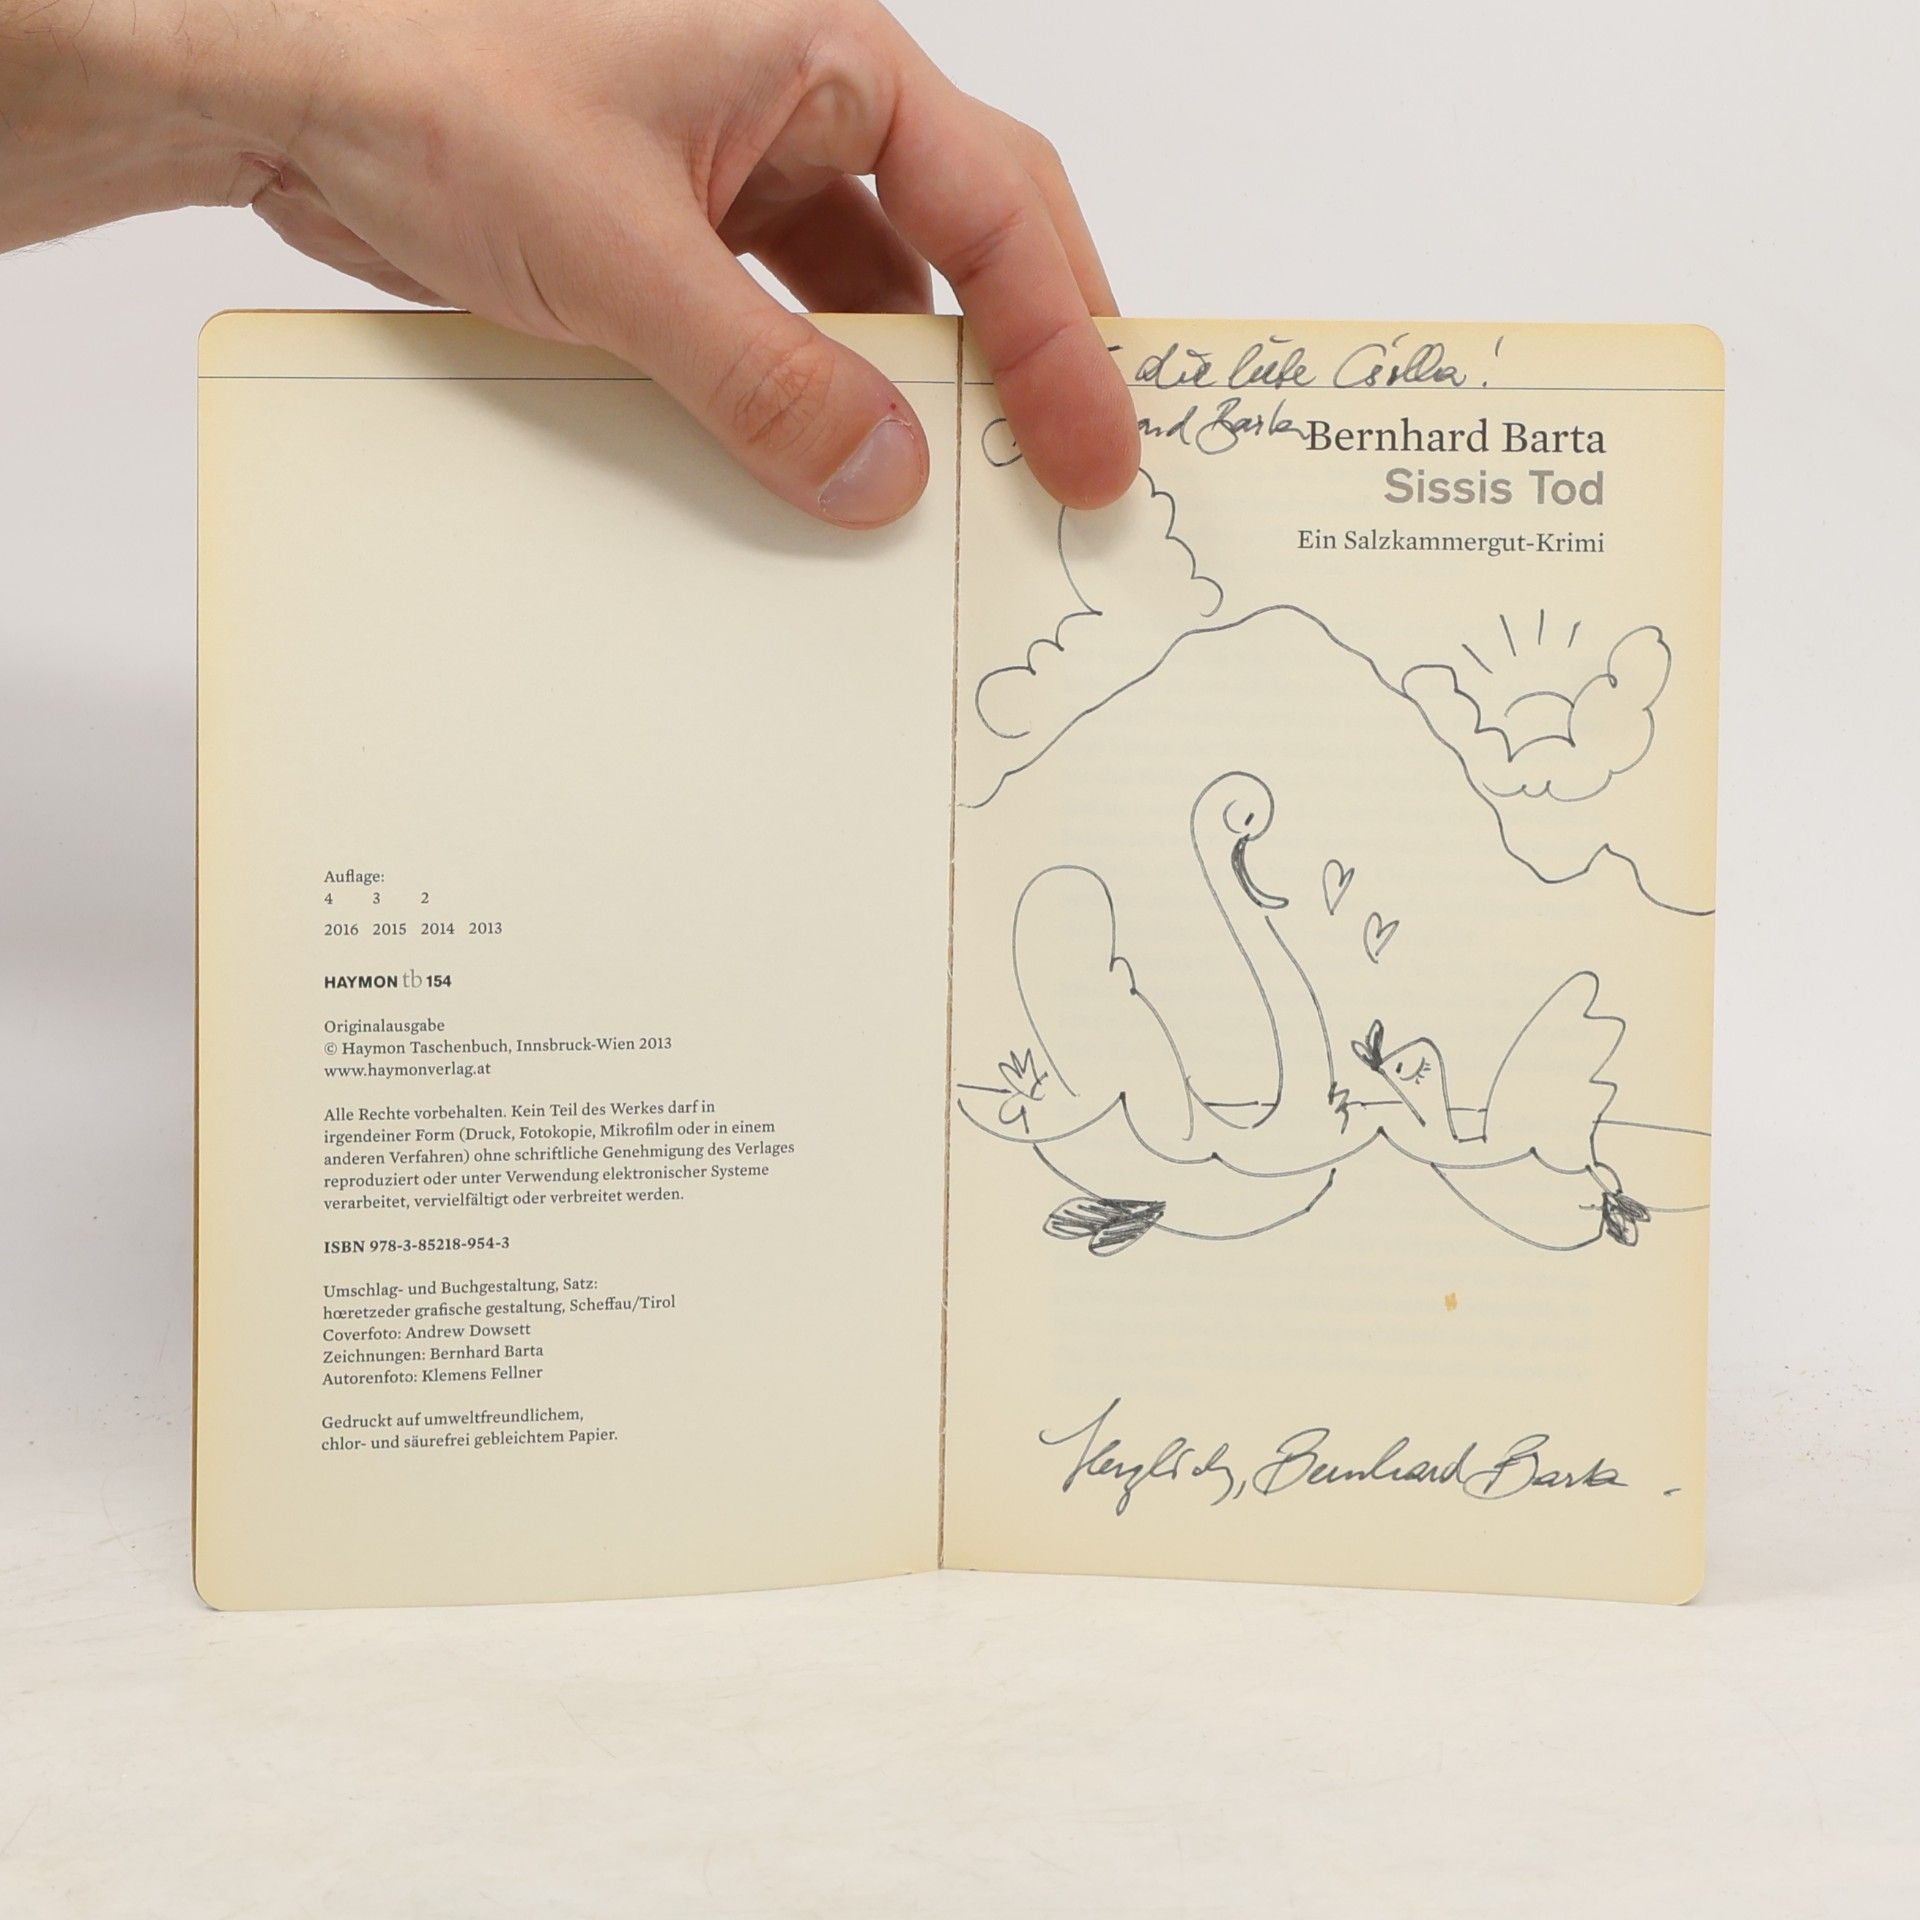 Auflage:
4 3 2
2016 2015 2014 2013
HAYMON tb 154
Originalausgabe
© Haymon Taschenbuch, Innsbruck-Wien 2013
www.haymonverlag.at
Alle Rechte vorbehalten. Kein Teil des Werkes darf in
irgendeiner Form (Druck, Fotokopie, Mikrofilm oder in einem
anderen Verfahren) ohne schriftliche Genehmigung des Verlages
reproduziert oder unter Verwendung elektronischer Systeme
verarbeitet, vervielfältigt oder verbreitet werden.
ISBN 978-3-85218-954-3
Umschlag- und Buchgestaltung, Satz:
hœretzeder grafische gestaltung, Scheffau/Tirol
Coverfoto: Andrew Dowsett
Zeichnungen: Bernhard Barta
Autorenfoto: Klemens Fellner
Gedruckt auf umweltfreundlichem,
chlor- und säurefrei gebleichtem Papier.
die liebe !
Barta
Bernhard Barta
Sissis Tod
Ein Salzkammergut-Krimi
Herzlich, Bernhard Barta